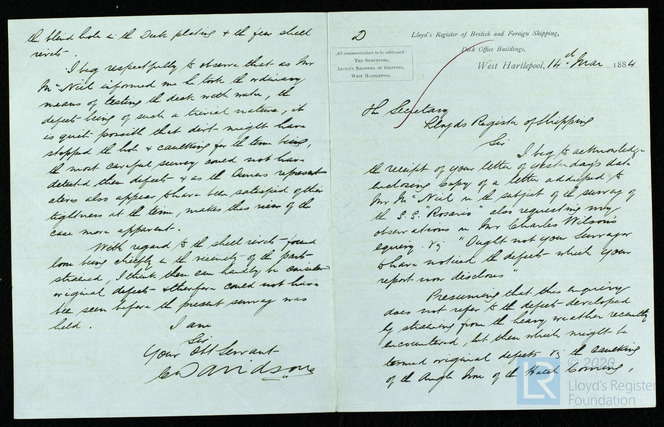 D
Lloyd's Register of British and Foreign Shipping,
Dock Office Buildings,
West Hartlepool, 14th Mar 1884
All communications to be addressed:
THE SURVEYORS,
LLOYD'S REGISTER OF SHIPPING,
WEST HARTLEPOOL.
The Secretary
Lloyds Register of Shipping
Sir
I beg to acknowledge
the receipt of your letter of yesterdays date
enclosing copy of a letter addressed to
Mr McNeil on the subject of the survey of
the S.S. "Rosario" also requesting my
observations on Mr Charles Wilson's
enquiry vz "Ought not your Surveyor
to have noticed the defects which your
report now discloses"
Presuming that this enquiry
does not refer to the defects developed
by straining from the heavy weather recently
encountered, but those which might be
termed original defects vz the caulking
of the Angle Iron of the Hatch Coming,
the blind hole in the Deck plating & the few shell
rivets.
I beg respectfully to observe that as Mr
McNeil informed me he took the ordinary
means of testing the deck with water, the
defects being of such a trivial nature, it
is quite possible that dirt might have
stopped the hole & caulking for the time being,
the most careful survey could not have
detected these defects & as the Owners represent
atives also appear to have been satisfied of the
tightness at the time, makes this view of the
case more apparent.
With regard to the shell rivets found
loose being chiefly in the vicinity of the parts
strained, I think these can hardly be considered
original defects & therefore could not have
been seen before the present survey was
held.
I am
Sir,
Your Obt Servant
© 2020
LR
Lloyd's Register
Foundation